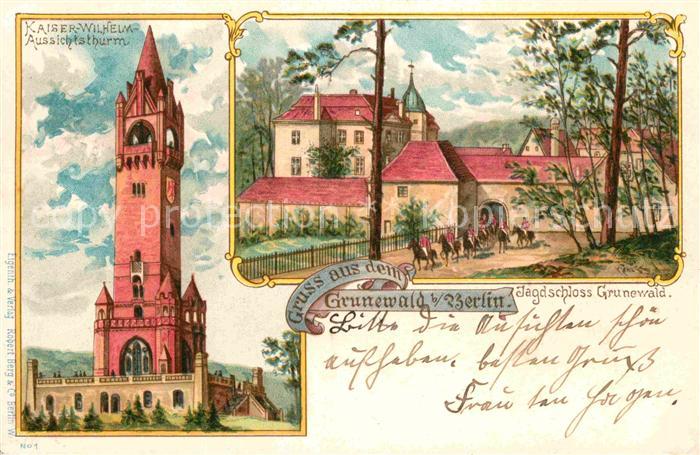 KAISER-WILHELM-
Aussichtsthurm.
Gruss aus dem
Grunewald b/ Berlin.
Jagdschloss Grunewald.
Bitte die Ansichten schön
aufheben. besten Gruß
Frau ten
Eigenth. & Verlag Robert Berg & Co Berlin W.
No 1
copy protection · Kopierschutz